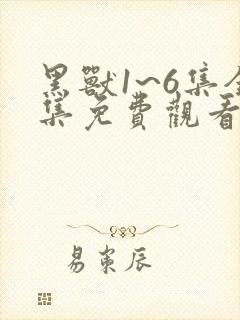 黑獸1~6集全
集免費觀看
易寒辰